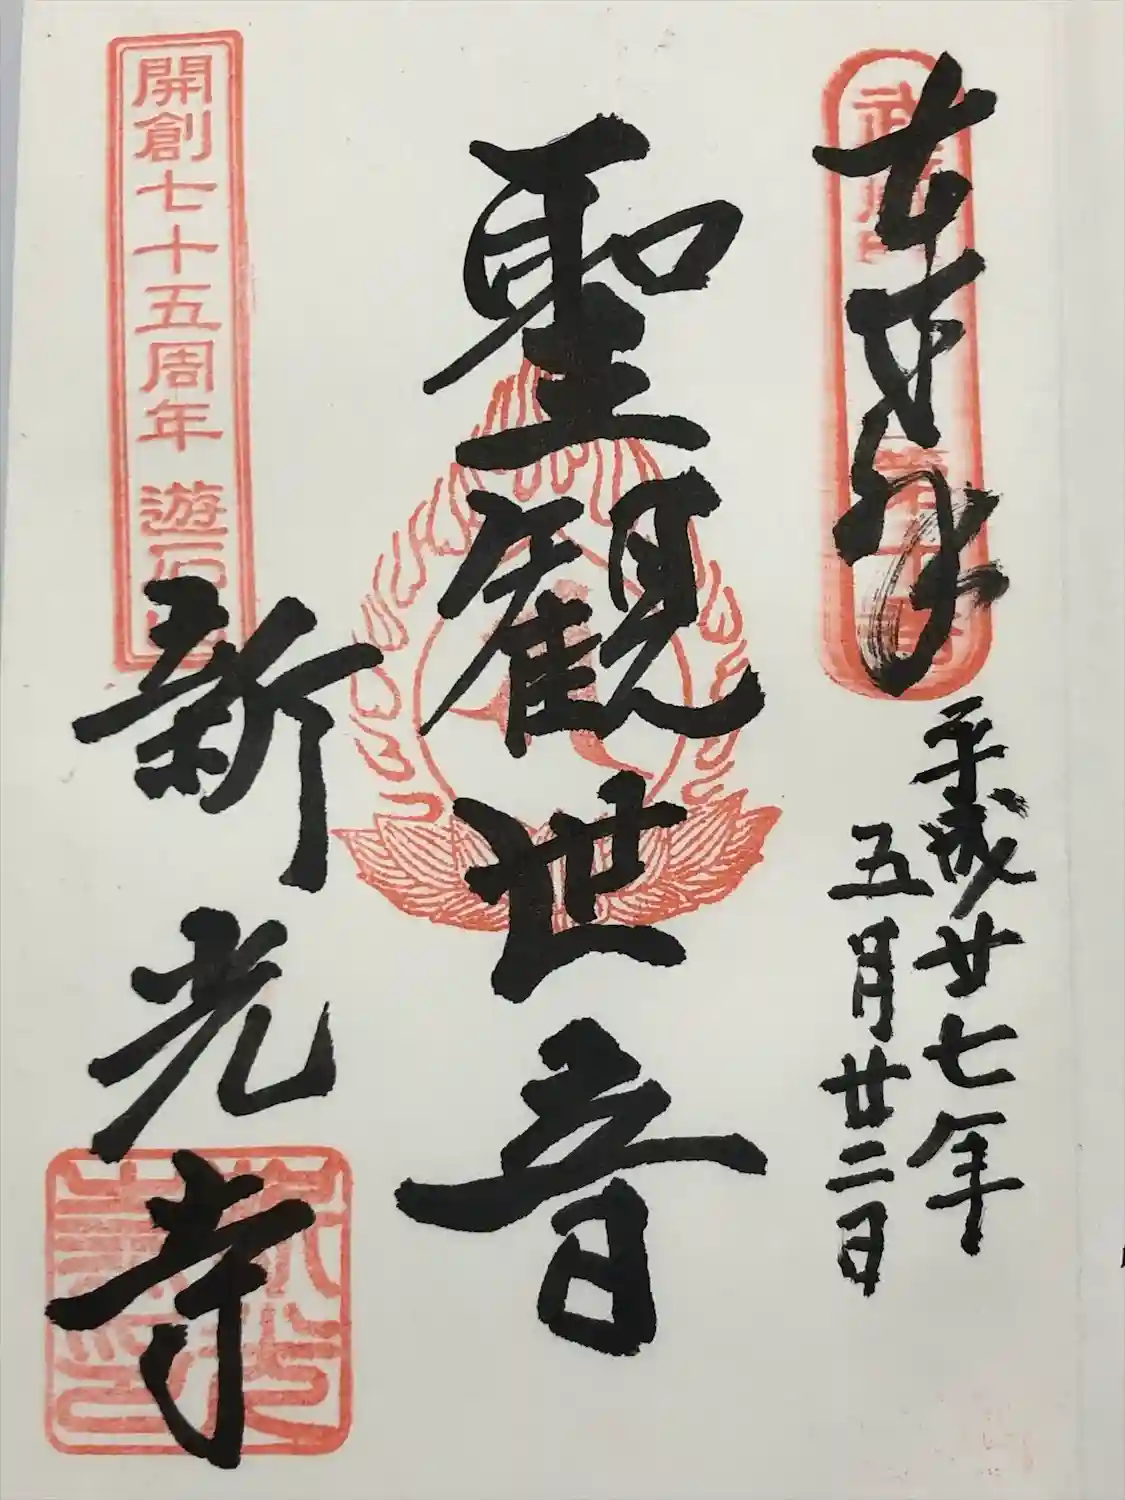 奉拝
平成廿七年
五月廿二日
聖観世音
開創七十五周年 遊石山
新光寺